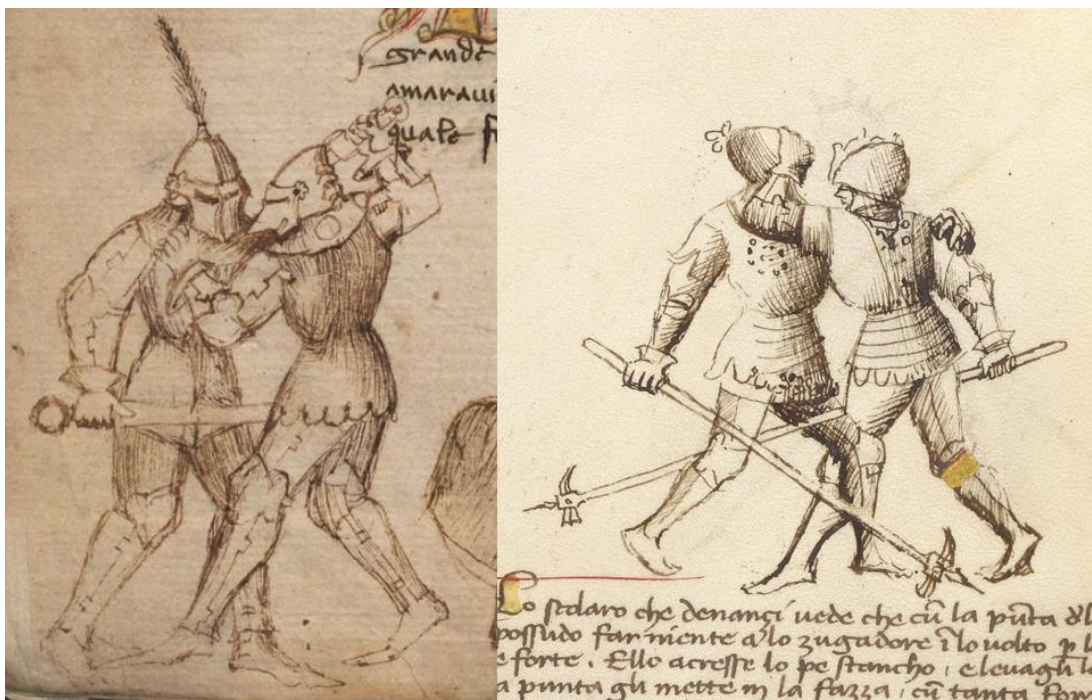 grande
amaraui
quale f
Lo scolaro che denançi uede che cū la pūta
possudo far niente a lo zugadore ī lo uolto p l
e forte. Ello acresse lo pe stancho, e leuagli
a punta gli mette in la fazza, cū